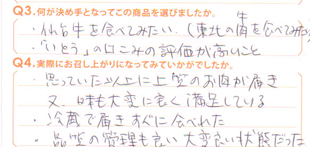 Q3.何が決め手となってこの商品を選びましたか。
・仙台牛を食べてみたい。(東北の牛肉を食べてみた
・「いとう」の口こみの評価が高いこと
Q4.実際にお召し上がりになってみていかがでしたか。
・思っていた以上に上質のお肉が届き
又、味も大変に良く満足している
・冷蔵で届きすぐに食べれた
・品質の管理も良い大変良い状態だった